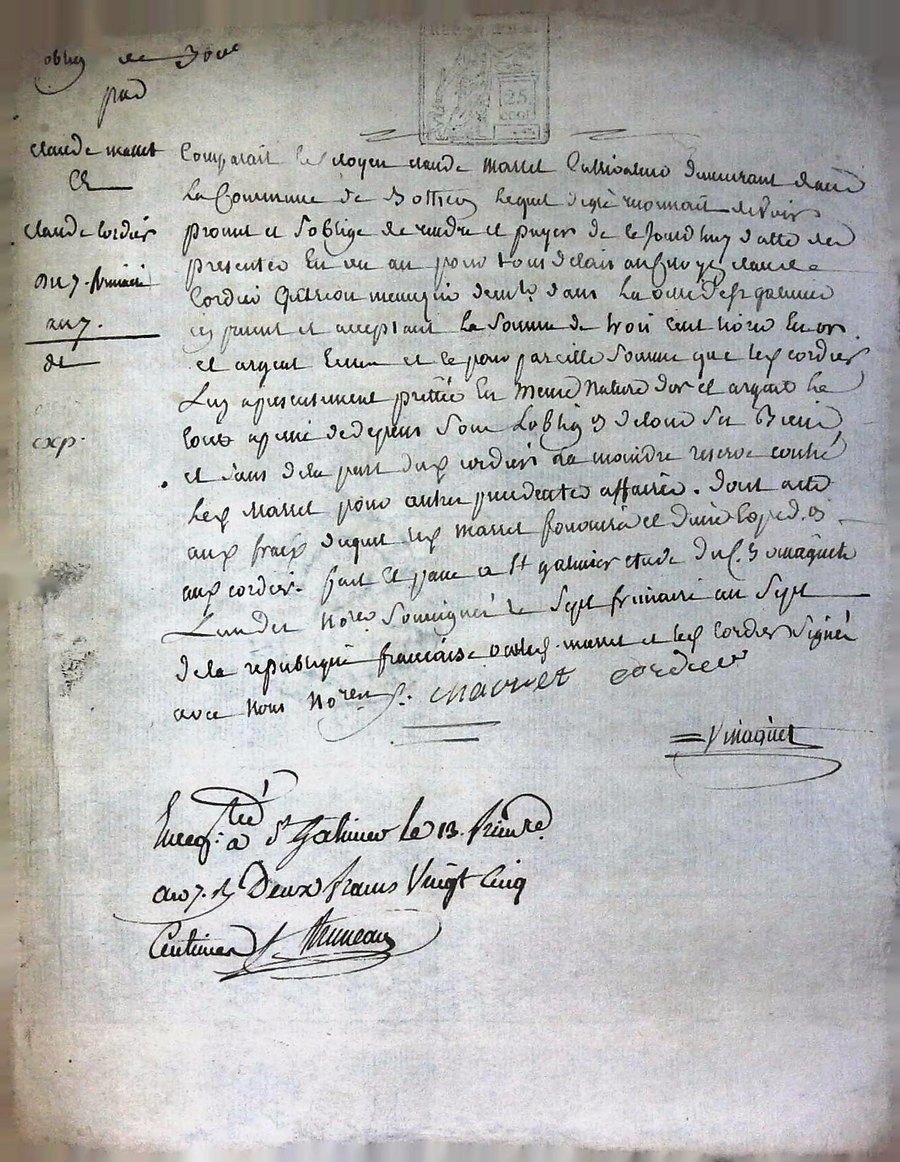 oblig de 300#
par
claude massct
a
claude cordier
du 7. frimaire
an 7.
dt
exp.
25
cent
Comparait le Citoyen claude massct Cultivateur demeurant dans
La Commune de lequel de gré reconnait devoir
promet et soblige de rendre et payer de ce Jourdhuy datte des
presentes En un an pour tous delais au Citoyen claude
Cordier Garcon menuzier demt. dans La de st galmier
icy present et acceptant La Somme de trois cent livres En or
et argent et ce pour pareille Somme que led cordier
Luy a presentement prettée En meme Nature dor et argent Le
tout a peine de depens Sous Lobligon de tous Ses Biens
et sans de la part dud cordier La moindre reserve contre
Led Massct pour autres precedentes affaires. dont acte
aux frais duquel led Massct fournira
aud cordier. fait et passé a St galmier etude du C. Vinaguet
L'un des Nores Soussignés le Sept frimaire an Sept
de la republique francaise massct et led Cordier Signé
avec Nous Nore massct cordier
Vinaguet
Enregtré a St Galmier le 13. frimre
an 7. Rs Deux francs Vingt Cinq
Centimes